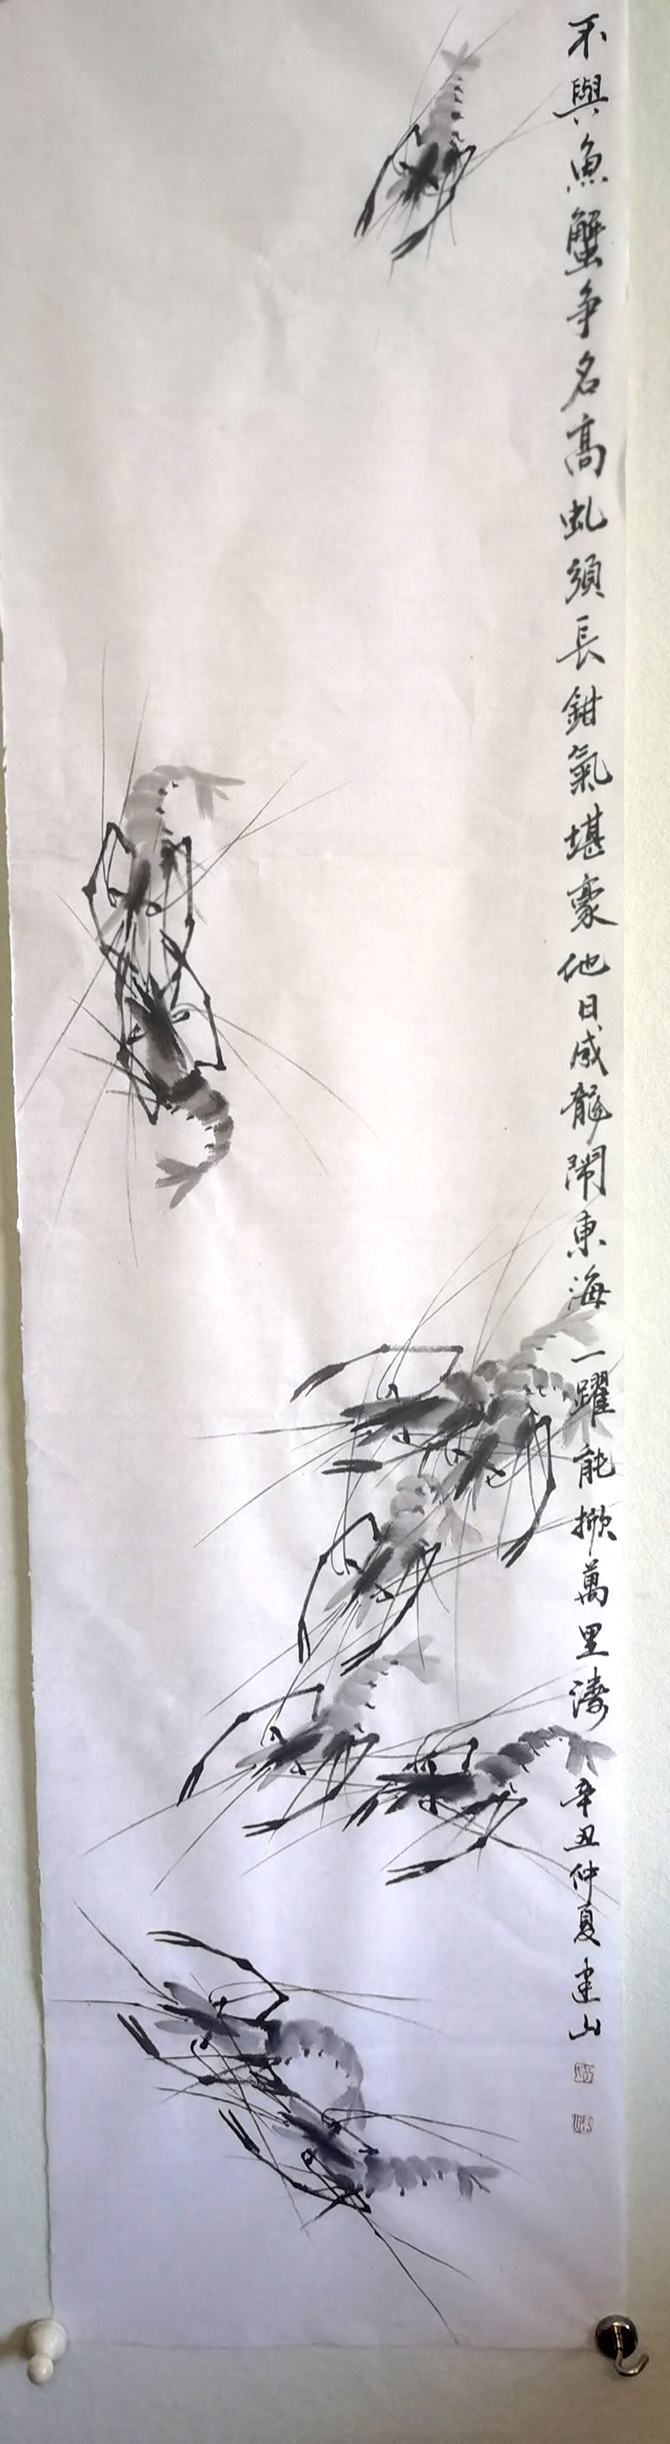 不與魚蟹争名高虬須長鉗氣堪豪他日成龍鬧東海一躍能掀萬里濤辛丑仲夏建山